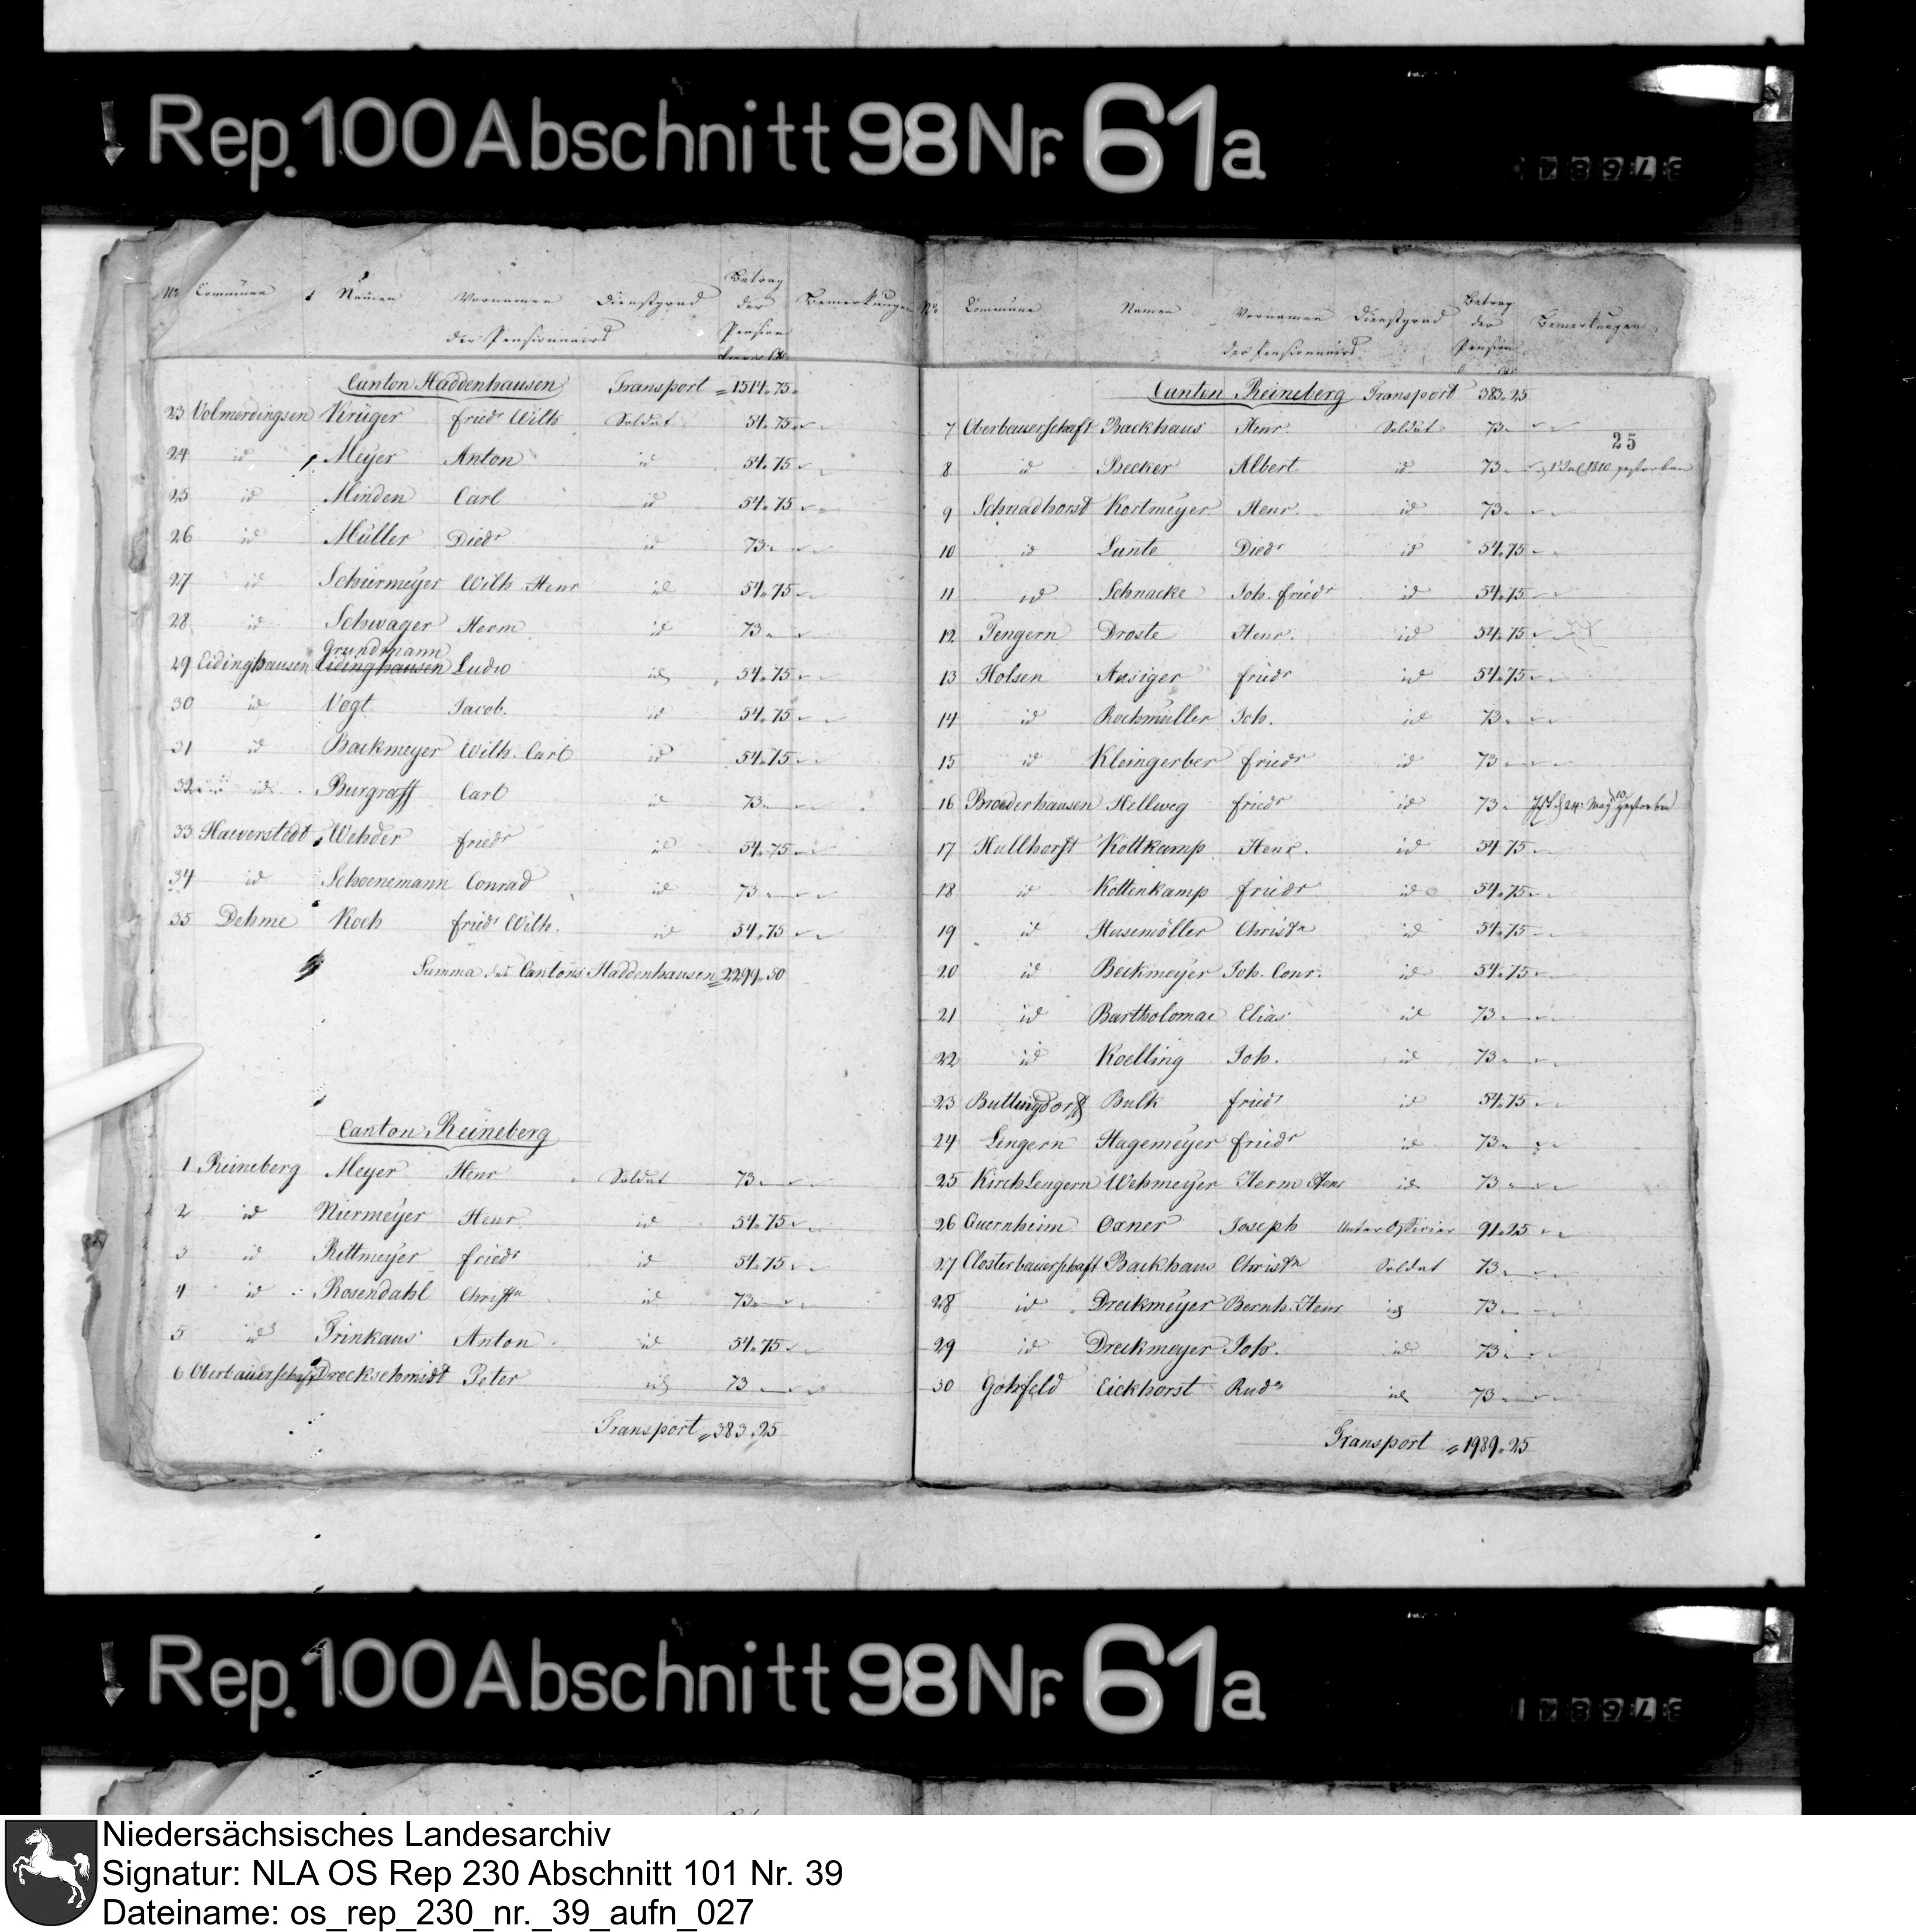 Rep. 100 Abschnitt 98 Nr. 61a
No Commune Namen Vornamen Dienstgrad Betrag der Pension Bemerkungen
der Pensionnairs
Canton Haddenhausen Transport = 1514. 75.
23 Volmerdingsen Krüger Friedr Wilh Soldat 54. 75
24 id Meyer Anton id 54. 75
25 id Minden Carl id 54. 75
26 id Müller Diedr id 73
27 id Schürmeyer Wilh Henr id 54. 75
28 id Schwager Herm id 73
Grundmann
29 Eidinghausen Eidinghausen Ludw id 54. 75
30 id Vogt Jacob. id 54. 75
31 id Backmeyer Wilh. Carl id 54. 75
32 id Burgraff Carl id 73
33 Haverstedt Wehder Friedr id 54. 75
34 id Schoenemann Conrad id 73
35 Dehme Koch Friedr Wilh. id 54. 75
Summa des Cantons Haddenhausen = 2299. 50
Canton Reineberg
1 Reineberg Meyer Henr Soldat 73
2 id Niermeyer Henr id 54. 75
3 id Rittmeyer Friedr id 54. 75
4 id Rosendahl Christn id 73
5 id Trinkaus Anton id 54. 75
6 Oberbauerschaft Dreckschmidt Peter id 73
Transport = 383. 25
No Commune Namen Vornamen Dienstgrad Betrag der Pension Bemerkungen
des Pensionnairs
Canton Reineberg Transport 383. 25
25
7 Oberbauerschaft Backhaus Henr. Soldat 73
8 id Becker Albert id 73 1810 gestorben
9 Schnadhorst Kortmeyer Henr. id 73
10 id Lunte Diedr id 54. 75
11 id Schnacke Joh. Friedr id 54. 75
12 Tengern Droste Henr. id 54. 75
13 Holsen Ansiger Friedr id 54. 75
14 id Rochmüller Joh. id 73
15 id Kleingerber Friedr id 73
16 Broederhausen Hellweg Friedr id 73 24 May gestorben
17 Hullhorst Kottkamp Henr. id 54 75
18 id Kottenkamp Friedr id 54. 75
19 id Husemöller Christn id 54. 75
20 id Beckmeyer Joh. Conr. id 54. 75
21 id Bartholomae Elias id 73
22 id Koelling Joh. id 73
23 Buttingdorff Bulk Friedr id 54. 75
24 Lengern Hagemeyer Friedr id 73
25 Kirchlengern Wehmeyer Herm Henr id 73
26 Quernheim Oxner Joseph Unterofficier 91. 25
27 Closterbauerschaft Backhaus Christn Soldat 73
28 id Dreckmeyer Bernh. Henr id 73
29 id Dreckmeyer Joh. id 73
30 Gohfeld Eickhorst Rud id 73
Transport = 1989. 25
Rep. 100 Abschnitt 98 Nr. 61a
Niedersächsisches Landesarchiv
Signatur: NLA OS Rep 230 Abschnitt 101 Nr. 39
Dateiname: os_rep_230_nr._39_aufn_027